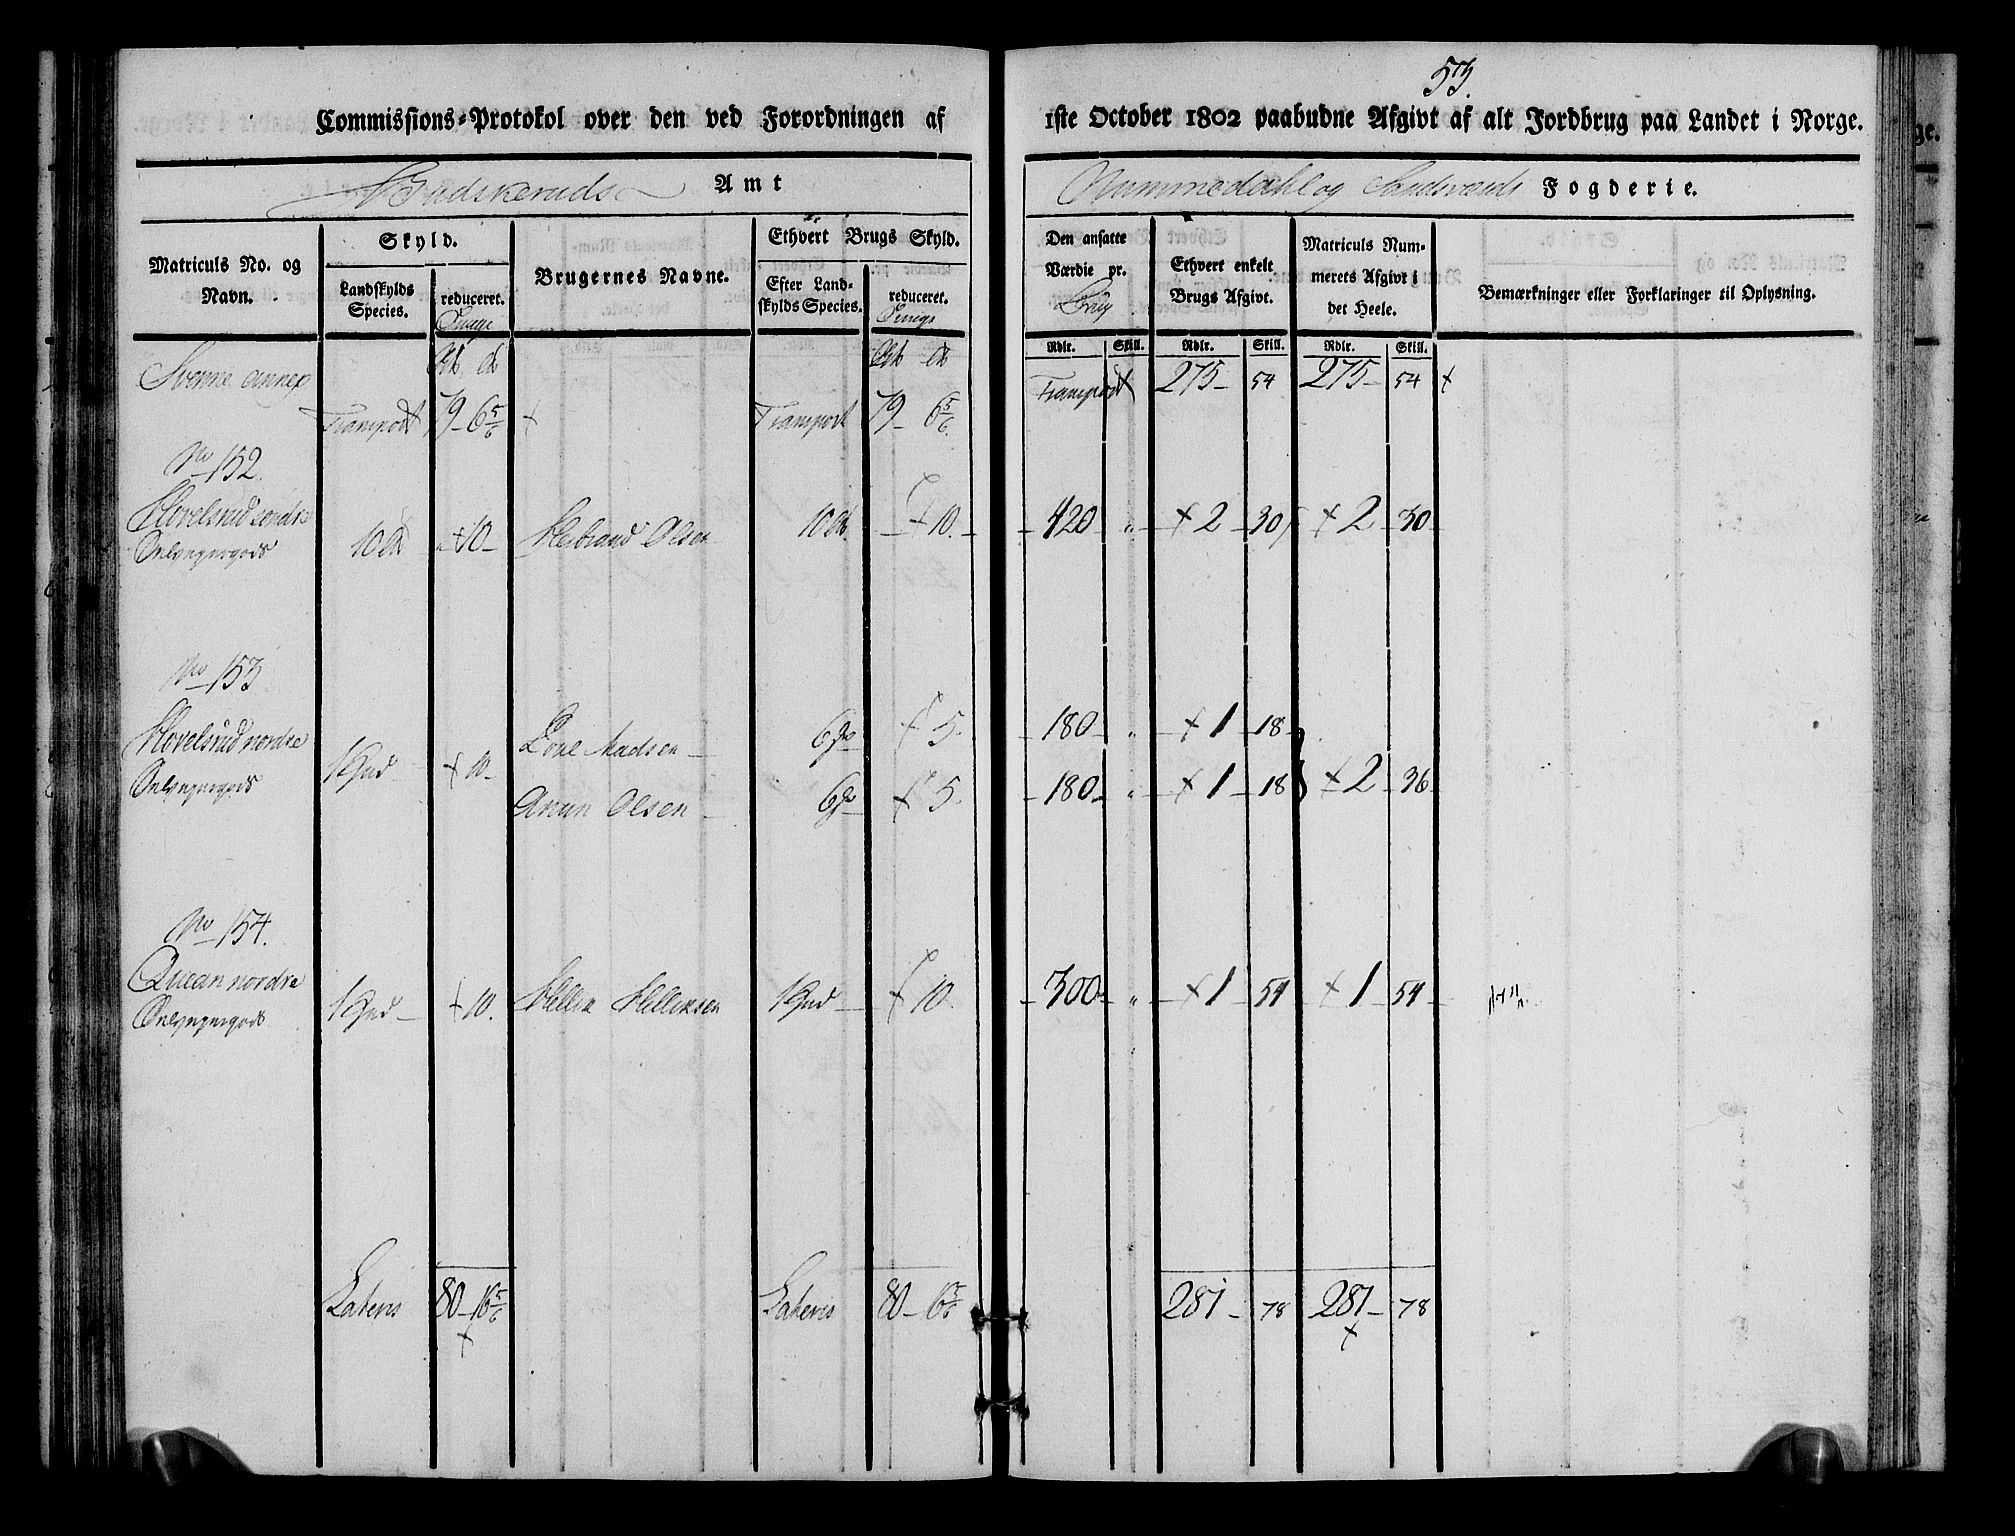 53.
Commissions-Protokol over den ved Forordningen af 1ste October 1802 paabudne Afgivt af alt Jordbrug paa Landet i Norge.
Budskeruds Amt
Nummedahl og Sandsværds Fogderie.
Matriculs No. og Navn.
Skyld.
Landskylds Species.
reduceret.
Brugernes Navne.
Ethvert Brugs Skyld.
Efter Landskylds Species.
reduceret.
Den ansatte Værdie pr. Brug
Ethvert enkelt Brugs Afgivt.
Matriculs Nummerets Afgivt i det Heele.
Bemærkninger eller Forklaringer til Oplysning.
Rdlr. Skill. Rdlr. Skill. Rdlr. Skill.
Svenne annex
Transport 79 - 6 5/6 Transport 79 - 6 5/6 Transport 275 - 54 275 - 54
No 152.
Hovelsrud søndre 10 10 Halvord Olsen 10 10. 420 " 2 30 2 30
Selveyergods
No 153
Hovelsrud nordre 1 Hud 10 Madsen 6 5. 180 " 1 18
Selveyergods Anun Olsen 6 5. 180 " 1 18 2 36
No 154.
Queen nordre 1 Hud 10. Hellik Helliksen 1 Hud 10. 300 " 1 54 1 54
Selveyergods
Lateris 80 - 16 5/6 Lateris 80 - 6 5/6 281 - 78 281 - 78